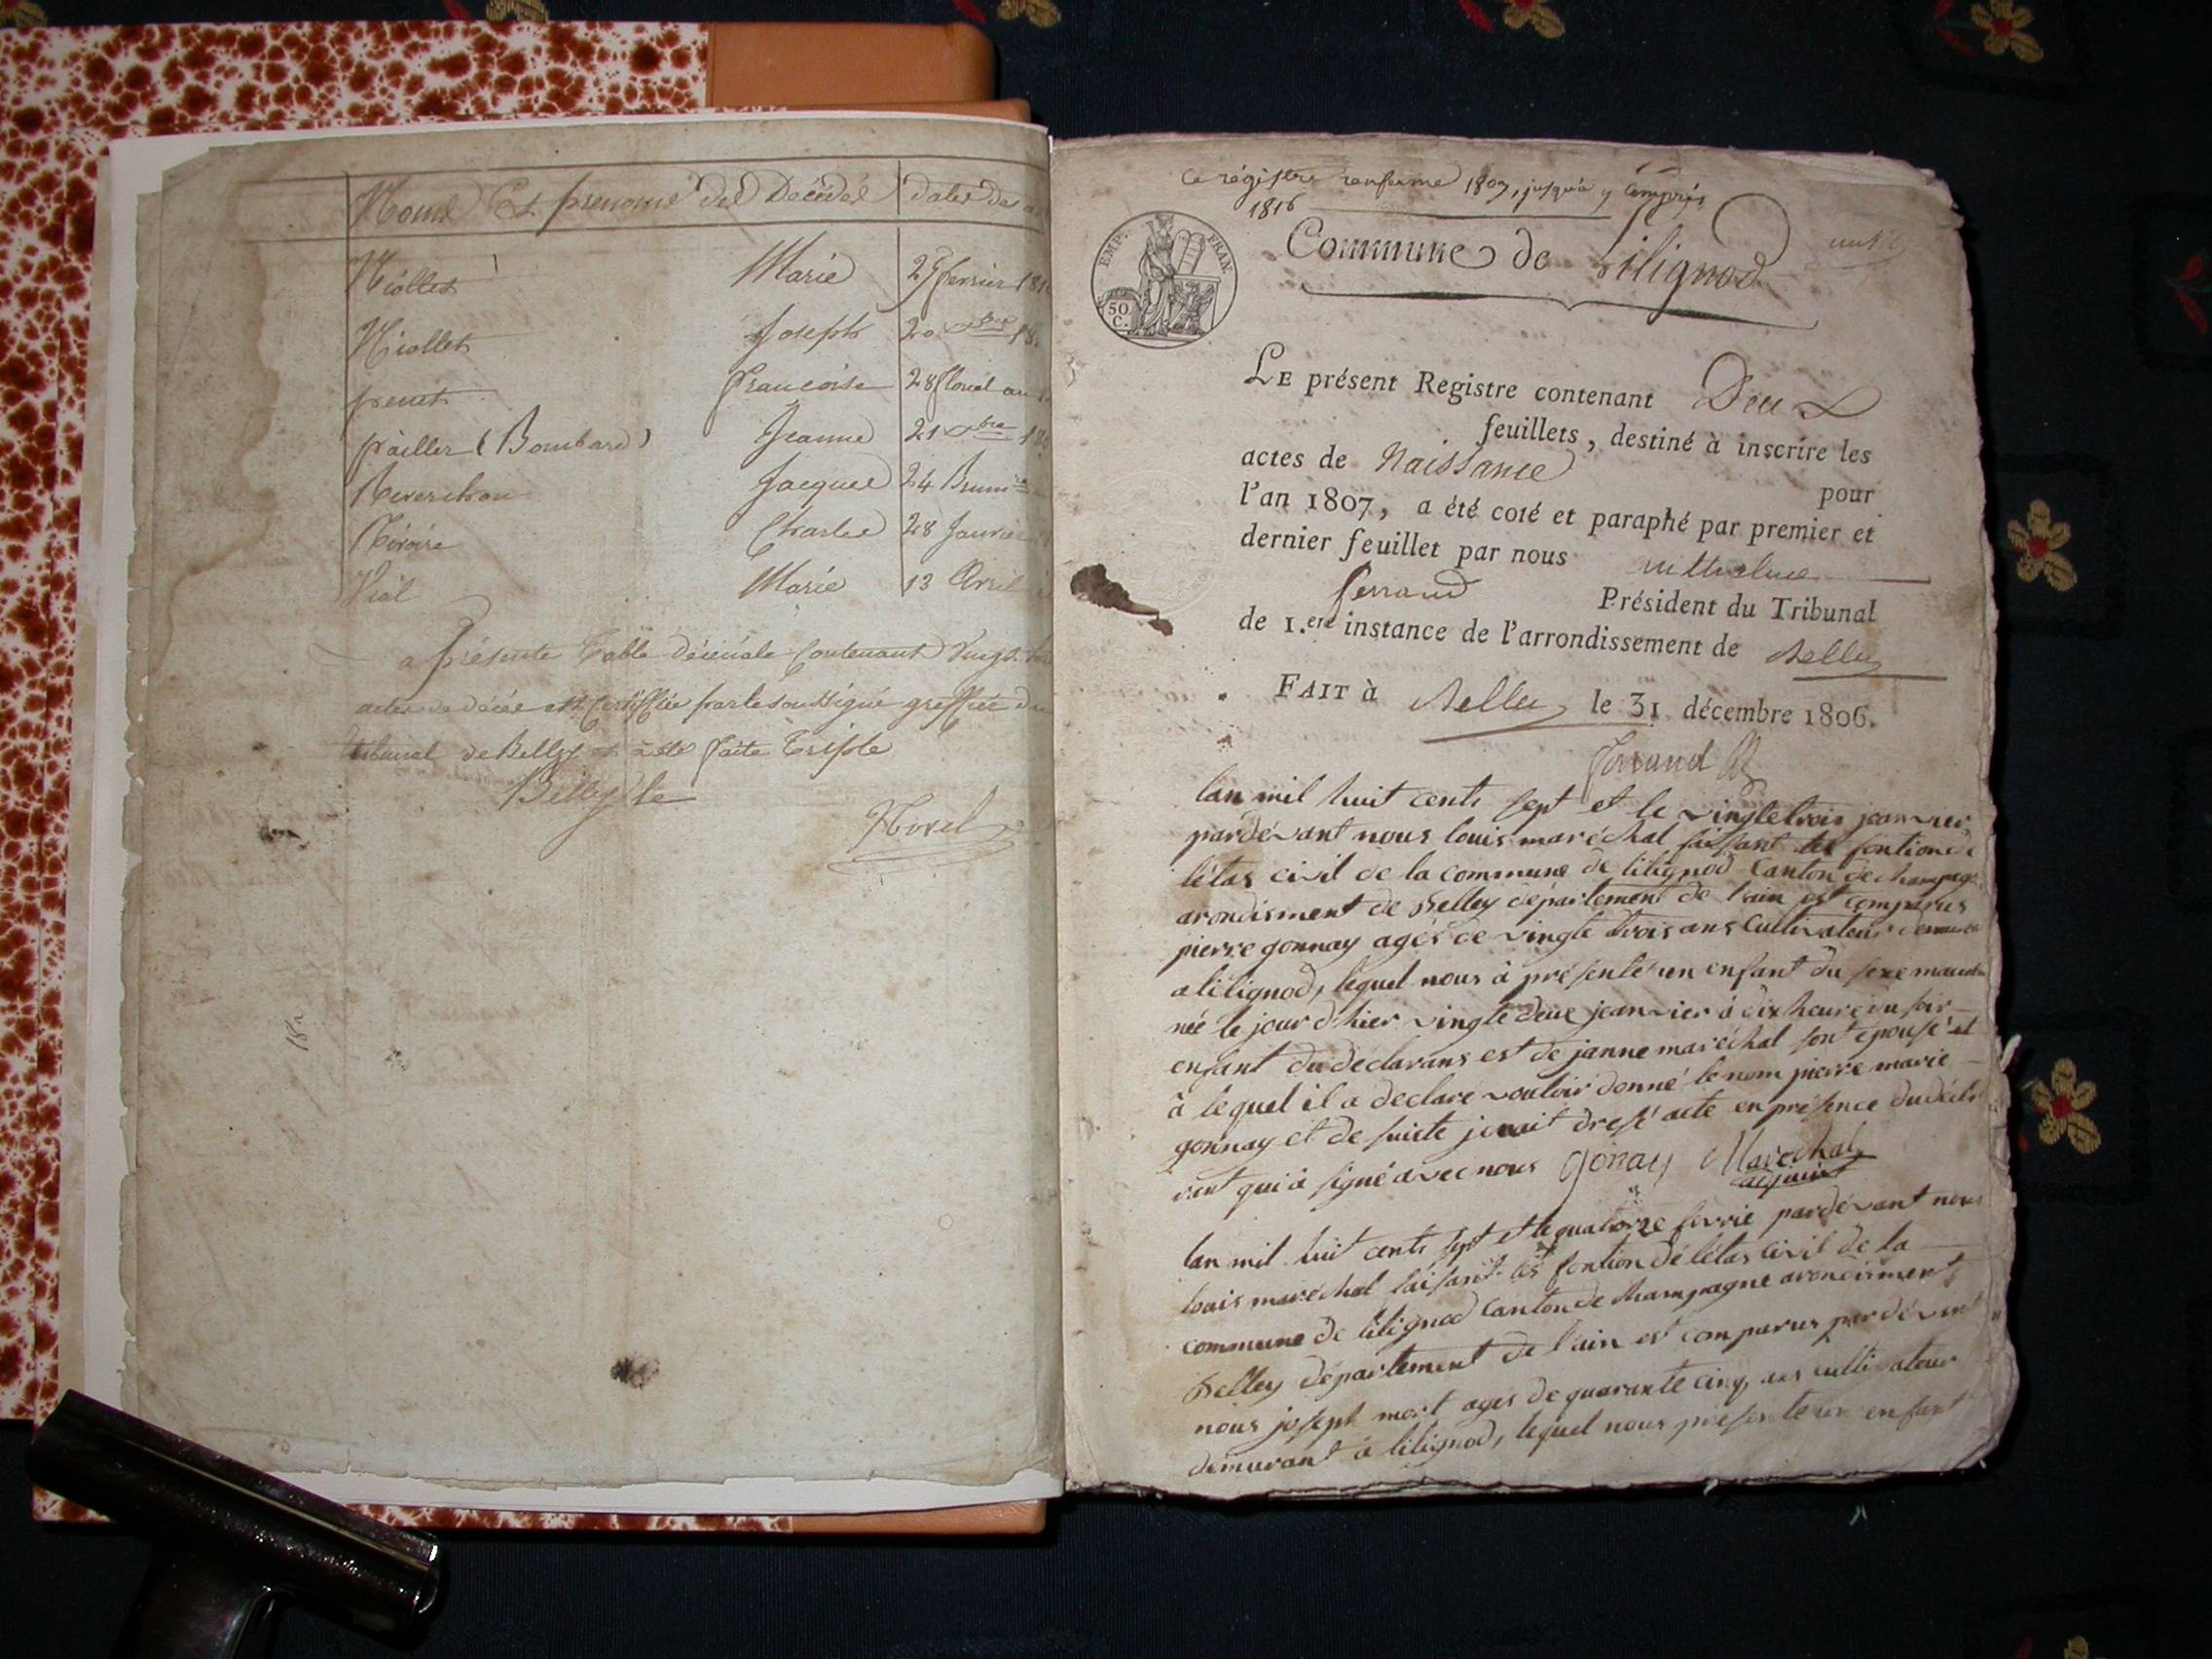 Noms Et prenoms des Décédés dates des
Niollet Marie 27 fevrier 181
Niollet Joseph 20 xbre 18
penet francoise 28 floreal an
pailler (Bombard) Jeanne 21 xbre 180
Reverchon Jacques 24 Brum
Charles 28 Janvier
Vial Marie 13 Avril
a présente Table décénale Contenant Vingt
actes de décés est Certiffiée par le soussigné greffier du
tribunal de Belley et a été faite Triple
Belley le
Morel
Ce régistre renferme 1807, jusqu'à y compris
1816
EMP. FRAN.
50 C.
Commune de Lilignod
LE présent Registre contenant Deux
feuillets, destiné à inscrire les
actes de Naissance pour
l'an 1807, a été coté et paraphé par premier et
dernier feuillet par nous anthelme
ferrand Président du Tribunal
de 1.ere instance de l'arrondissement de Belley
FAIT à Belley le 31 décembre 1806.
ferrand
lan mil huit cents sept et le vingtetrois jeanvier
pardévant nous louis maréchal faissant les fontions
létas civil de la commune de lilignod Canton de champag
arondisment de Belley département de lain est comparus
pierre gonnay agés de vingte trois ans Cultivateur demura
a lilignod, lequel nous à présenté un enfant du sexe mascu
née le jour d'hier vingte deux jeanvier à dix heure du soir
enfant du declarans est de janne maréchal sont épousé et
à lequel il a declaré vouloir donné le nom pierre marie
gonnay et de suiste j'enait dresé acte en présence du décla
rant qui à signé avec nous gonay Marechal
adjoint
lan mil huit cents sept et le quatorze fevrie pardévant nous
louis maréchal faisant les fontion dé létas civil de la
commune de lilignod canton de champagne arondisment
Belley département de lain est comparus pardévant
nous joseph mort agés de quarante cinq ans cultivateur
demurant à lilignod, lequel nous présente un enfant